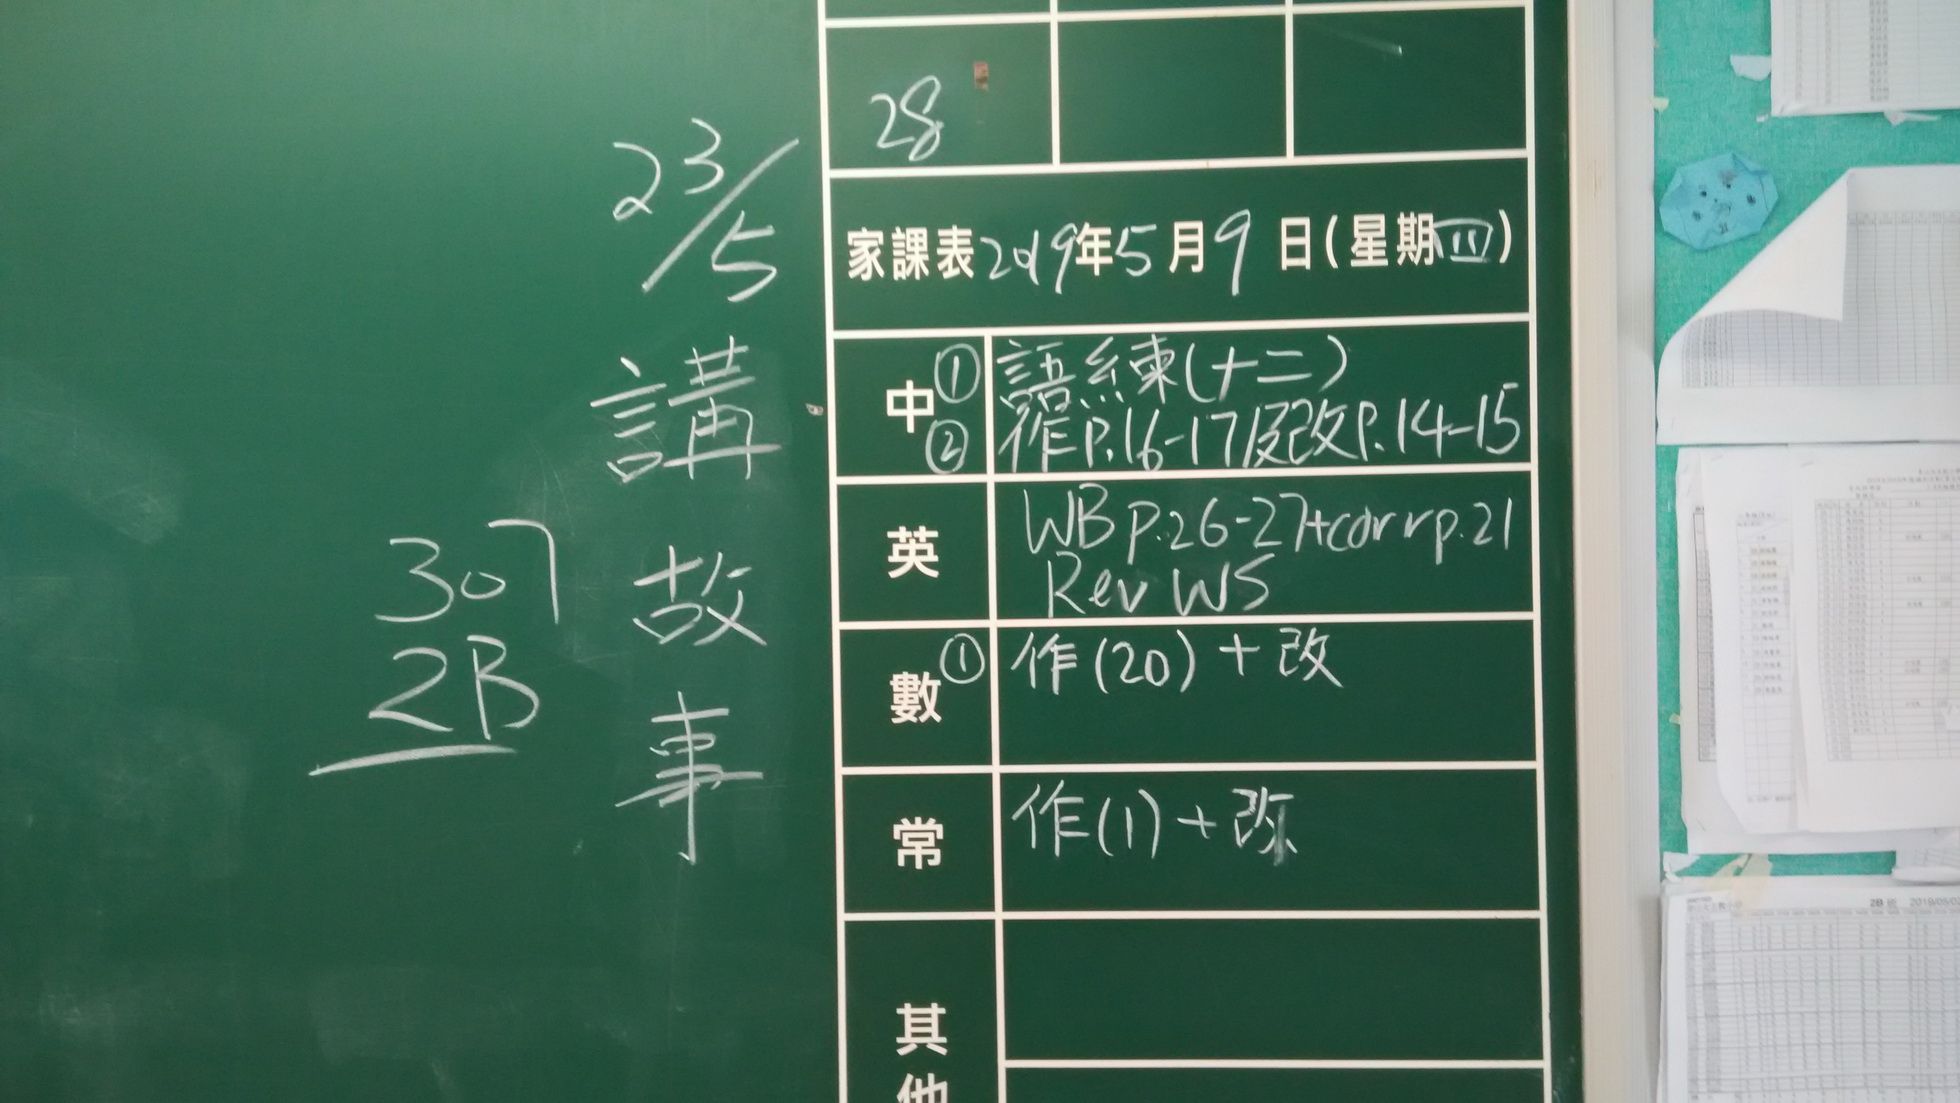 28
23/5
講故事
307
2B
家課表2019年5月9日(星期四)
中 ① 語練(十二)
② 作P.16-17及改P.14-15
英 WB p.26-27+corr p.21
Rev WS
數 ① 作(20)+改
常 作(1)+改
其他
2B 班 2019/05/02